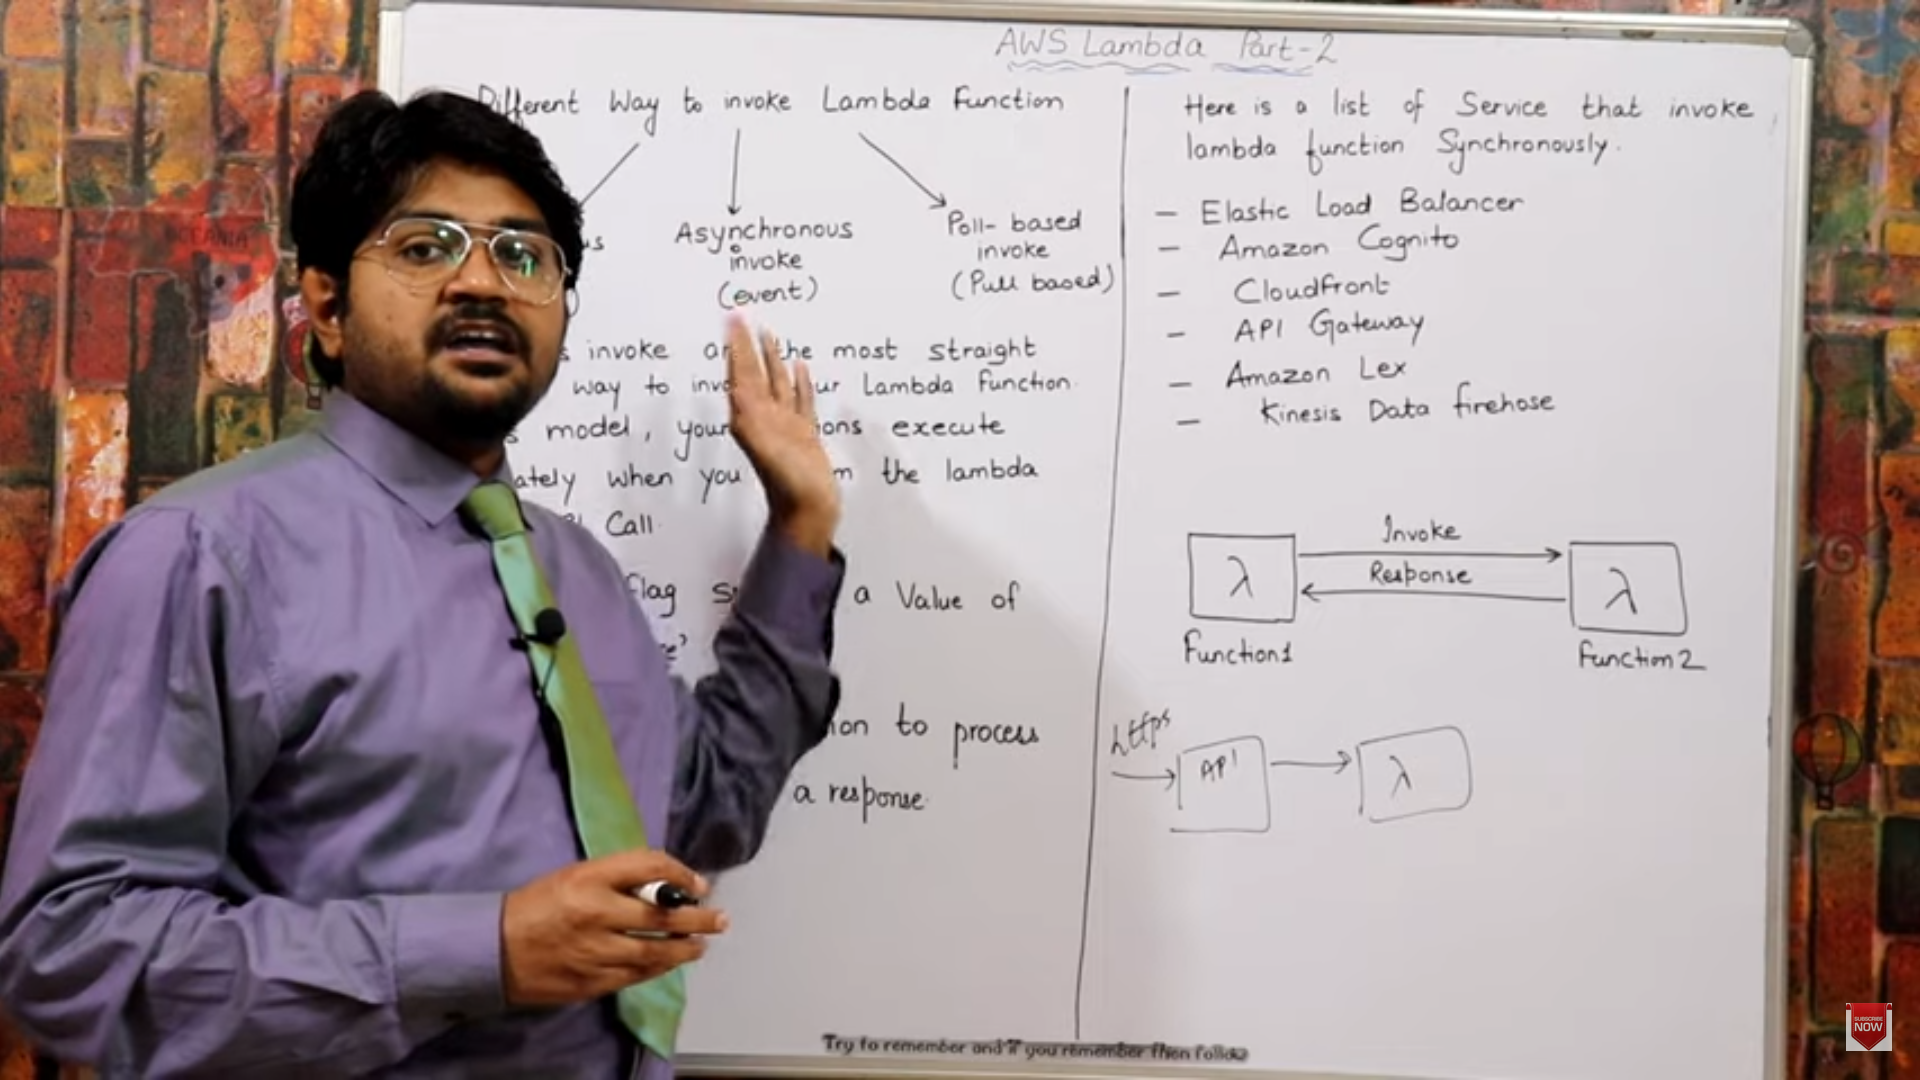 AWS Lambda Part-2
Different Way to invoke Lambda Function
Asynchronous
invoke
(event)
Poll-based
invoke
(Pull based)
invoke the most straight
way to your Lambda Function.
model, execute
when you the lambda
Call.
flag a Value of
to process
a response.
Here is a list of Service that invoke
lambda function Synchronously.
- Elastic Load Balancer
- Amazon Cognito
- Cloudfront
- API Gateway
- Amazon Lex
- Kinesis Data firehose
Invoke
Response
λ
λ
Function1
Function2
https
API
λ
Try to remember and if you remember then follow
SUBSCRIBE
NOW